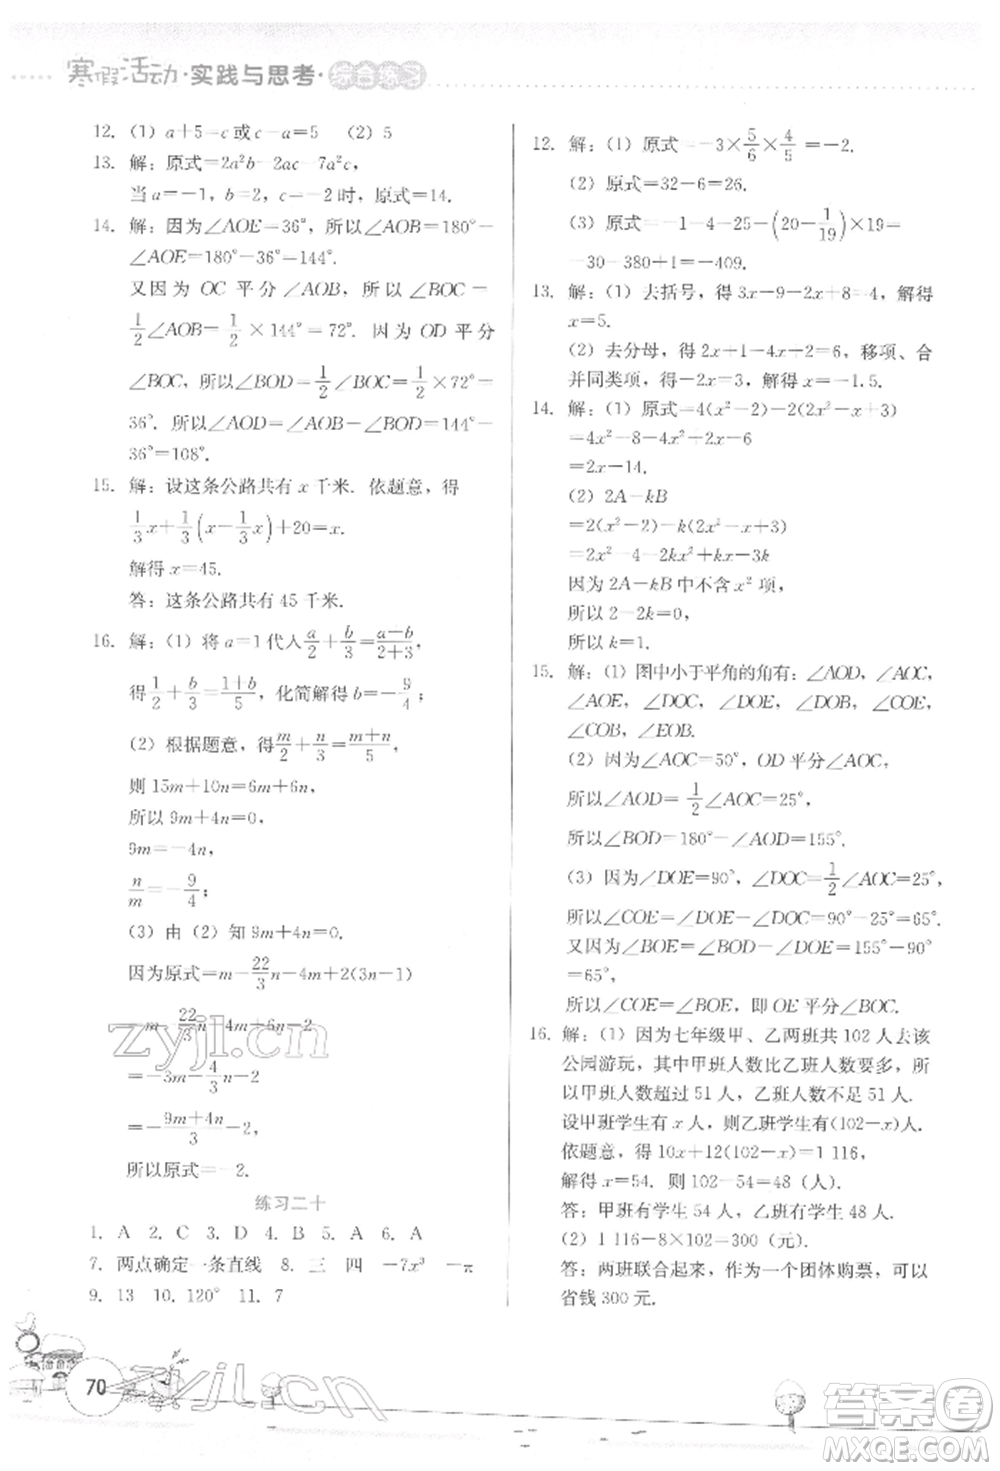 寒假活动·实践与思考·综合练习
12. (1) a+5=c或c-a=5 (2) 5
13. 解：原式=2a²b-2ac-7a²c.
当a=-1，b=2，c=-2时，原式=14.
14. 解：因为∠AOE=36°，所以∠AOB=180°-
∠AOE=180°-36°=144°.
又因为 OC 平分∠AOB，所以∠BOC=
1/2∠AOB=1/2×144°=72°. 因为 OD 平分
∠BOC，所以∠BOD=1/2∠BOC=1/2×72°=
36°. 所以∠AOD=∠AOB-∠BOD=144°-
36°=108°.
15. 解：设这条公路共有 x 千米. 依题意，得
1/3x+1/3(x-1/3x)+20=x.
解得 x=45.
答：这条公路共有 45 千米.
16. 解：(1) 将 a=1 代入a/2+b/3=(a+b)/(2+3)，
得1/2+b/3=(1+b)/5，化简解得 b=-9/4；
(2) 根据题意，得m/2+n/3=(m+n)/5，
则 15m+10n=6m+6n，
所以 9m+4n=0，
9m=-4n，
n/m=-9/4；
(3) 由 (2) 知 9m+4n=0.
因为原式=m-22/3n-4m+2(3n-1)
=m-22/3n-4m+6n-2
=-3m-4/3n-2
=-(9m+4n)/3-2，
所以原式=-2.
练习二十
1. A 2. C 3. D 4. B 5. A 6. A
7. 两点确定一条直线 8. 三 四 -7x³ -π
9. 13 10. 120° 11. 7
12. 解：(1) 原式=-3×5/6×4/5=-2.
(2) 原式=32-6=26.
(3) 原式=-1-4-25-(20-1/19)×19=
-30-380+1=-409.
13. 解：(1) 去括号，得 3x-9-2x+8=4，解得
x=5.
(2) 去分母，得 2x+1-4x-2=6，移项、合
并同类项，得-2x=3，解得 x=-1.5.
14. 解：(1) 原式=4(x²-2)-2(2x²-x+3)
=4x²-8-4x²+2x-6
=2x-14.
(2) 2A-kB
=2(x²-2)-k(2x²-x+3)
=2x²-4-2kx²+kx-3k
因为 2A-kB 中不含 x² 项，
所以 2-2k=0，
所以 k=1.
15. 解：(1) 图中小于平角的角有：∠AOD，∠AOC，
∠AOE，∠DOC，∠DOE，∠DOB，∠COE，
∠COB，∠EOB.
(2) 因为∠AOC=50°，OD 平分∠AOC，
所以∠AOD=1/2∠AOC=25°，
所以∠BOD=180°-∠AOD=155°.
(3) 因为∠DOE=90°，∠DOC=1/2∠AOC=25°，
所以∠COE=∠DOE-∠DOC=90°-25°=65°.
又因为∠BOE=∠BOD-∠DOE=155°-90°
=65°，
所以∠COE=∠BOE，即 OE 平分∠BOC.
16. 解：(1) 因为七年级甲、乙两班共 102 人去该
公园游玩，其中甲班人数比乙班人数要多，所
以甲班人数超过 51 人，乙班人数不足 51 人.
设甲班学生有 x 人，则乙班学生有(102-x)人，
依题意，得 10x+12(102-x)=1 116，
解得 x=54. 则 102-54=48（人）.
答：甲班有学生 54 人，乙班有学生 48 人.
(2) 1 116-8×102=300（元）.
答：两班联合起来，作为一个团体购票，可以
省钱 300 元.
zyjl.cn
zyjl.cn
70
答案圈
MXQE.COM